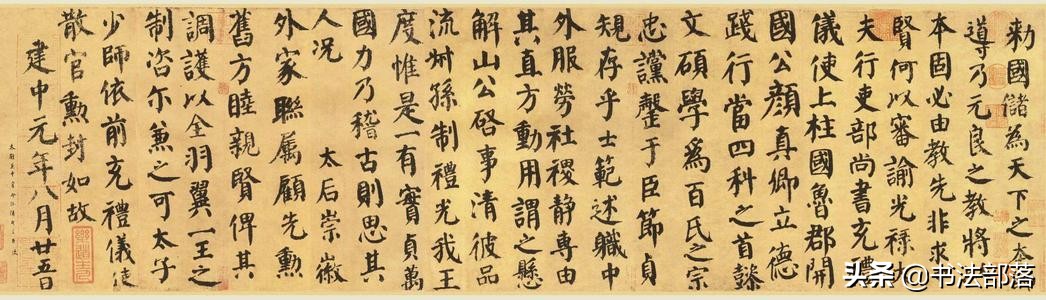 勑國儲為天下之本
導乃元良之教將
本固必由教先非求
賢何以審諭光祿大
夫行吏部尚書充禮
儀使上柱國魯郡開
國公顏真卿立德
踐行當四科之首懿
文碩學爲百氏之宗
忠讜罄于臣節貞
規存乎士範述職中
外服勞社稷静專由
其直方動用謂之懸
解山公啓事清彼品
流叔孫制禮光我王
度惟是一有實貞萬
國力乃稽古則思其
人况 太后崇徽
外家聯属顧先勳
舊方睦親賢俾其
調護以全羽翼一王之
制咨尔兼之可太子
少師依前充禮儀使
散官勳封如故
建中元年八月廿五日
头条 @书法部落